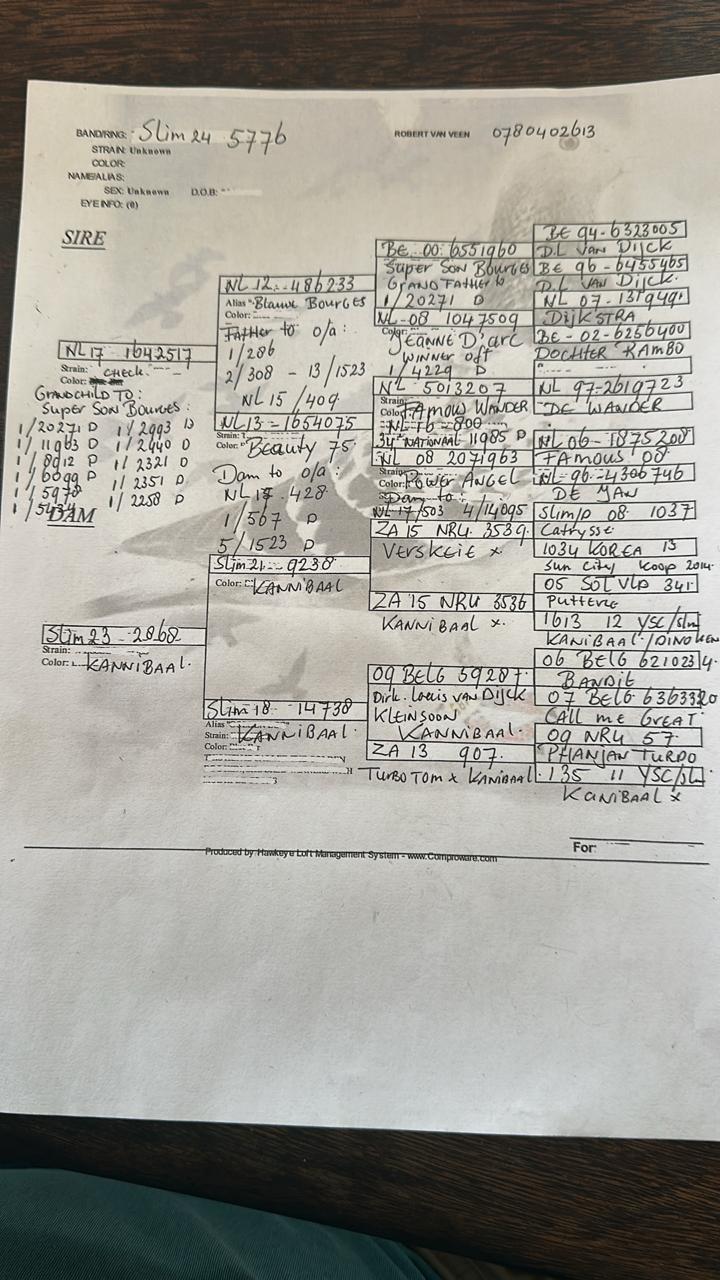 BAND/RING: Slim 24 5776
ROBERT VAN VEEN 0780402613
STRAIN: Unknown
COLOR:
NAME/ALIAS:
SEX: Unknown D.O.B:
EYE INFO: (0)
SIRE
NL 17 1642517
Strain: CHECK
Color:
GRANDCHILD TO:
Super Son Bourges:
1/20271 D 1/2993 D
1/11963 D 1/2440 D
1/8912 D 1/2321 D
1/6099 D 1/2351 D
1/5978 1/2258 D
DAM
Slim 23 - 2868
Strain:
Color: KANNIBAAL
NL 12 - 486233
Alias Blauwe Bourges
Color:
Father to o/a:
1/286
2/308 - 13/1523
NL 15 / 409
NL13 - 1654075
Strain:
Color: Beauty 75
Dam to o/a:
428
1/567 D
5/1523 D
Slim 21 - 9238
Color: KANNIBAAL
Slim 18 - 14738
Alias
Strain: KANNIBAAL
Color:
BE 00 6551960
Super Son Bourges
GRAND FATHER
1/20271 D
NL-08 1047509
Color:
JEANNE D'arc
WINNER off
1/4229 D
NL 5013207
Strain:
Color: FAMOUS WANDER
34e NATIONAAL 11985 D
NL 08 2071963
Strain:
Color: POWER ANGEL
Dam to:
NL 17/503 4/14095
ZA 15 NRU 3539
VERSKEIE x
ZA 15 NRU 3536
KANNIBAAL x.
09 BELG 59287
Dirk. Louis VAN DIJCK
KLEINSOON
KANNIBAAL
ZA 13 907.
TURBO TOM x KANIBAAL
BE 94-6323005
D.L VAN DIJCK
BE 96-6455465
D.L VAN DIJCK.
NL 07-
DIJKSTRA
BE-02-6256400
DOCHTER RAMBO
NL 97-2619723
DE WANDER
NL 06-1875208
FAMOUS 08
NL-96-4306746
DE JAN
Slim/p 08 1037
Catrysse
1034 KOREA 13
Sun City Koop 2014
05 SOL Vlp 341
PUTTERIE
1613 12 YSC/slm
KANIBAAL/DINOKEN
06 BELG 6210234
BANDIT
07 BELG 6363320
CALL ME GREAT
09 NRU 57
PHANJAN TURBO
135 11 YSC/slm
KANIBAAL x
Produced by Hawkeye Loft Management System - www.Comproware.com
For: